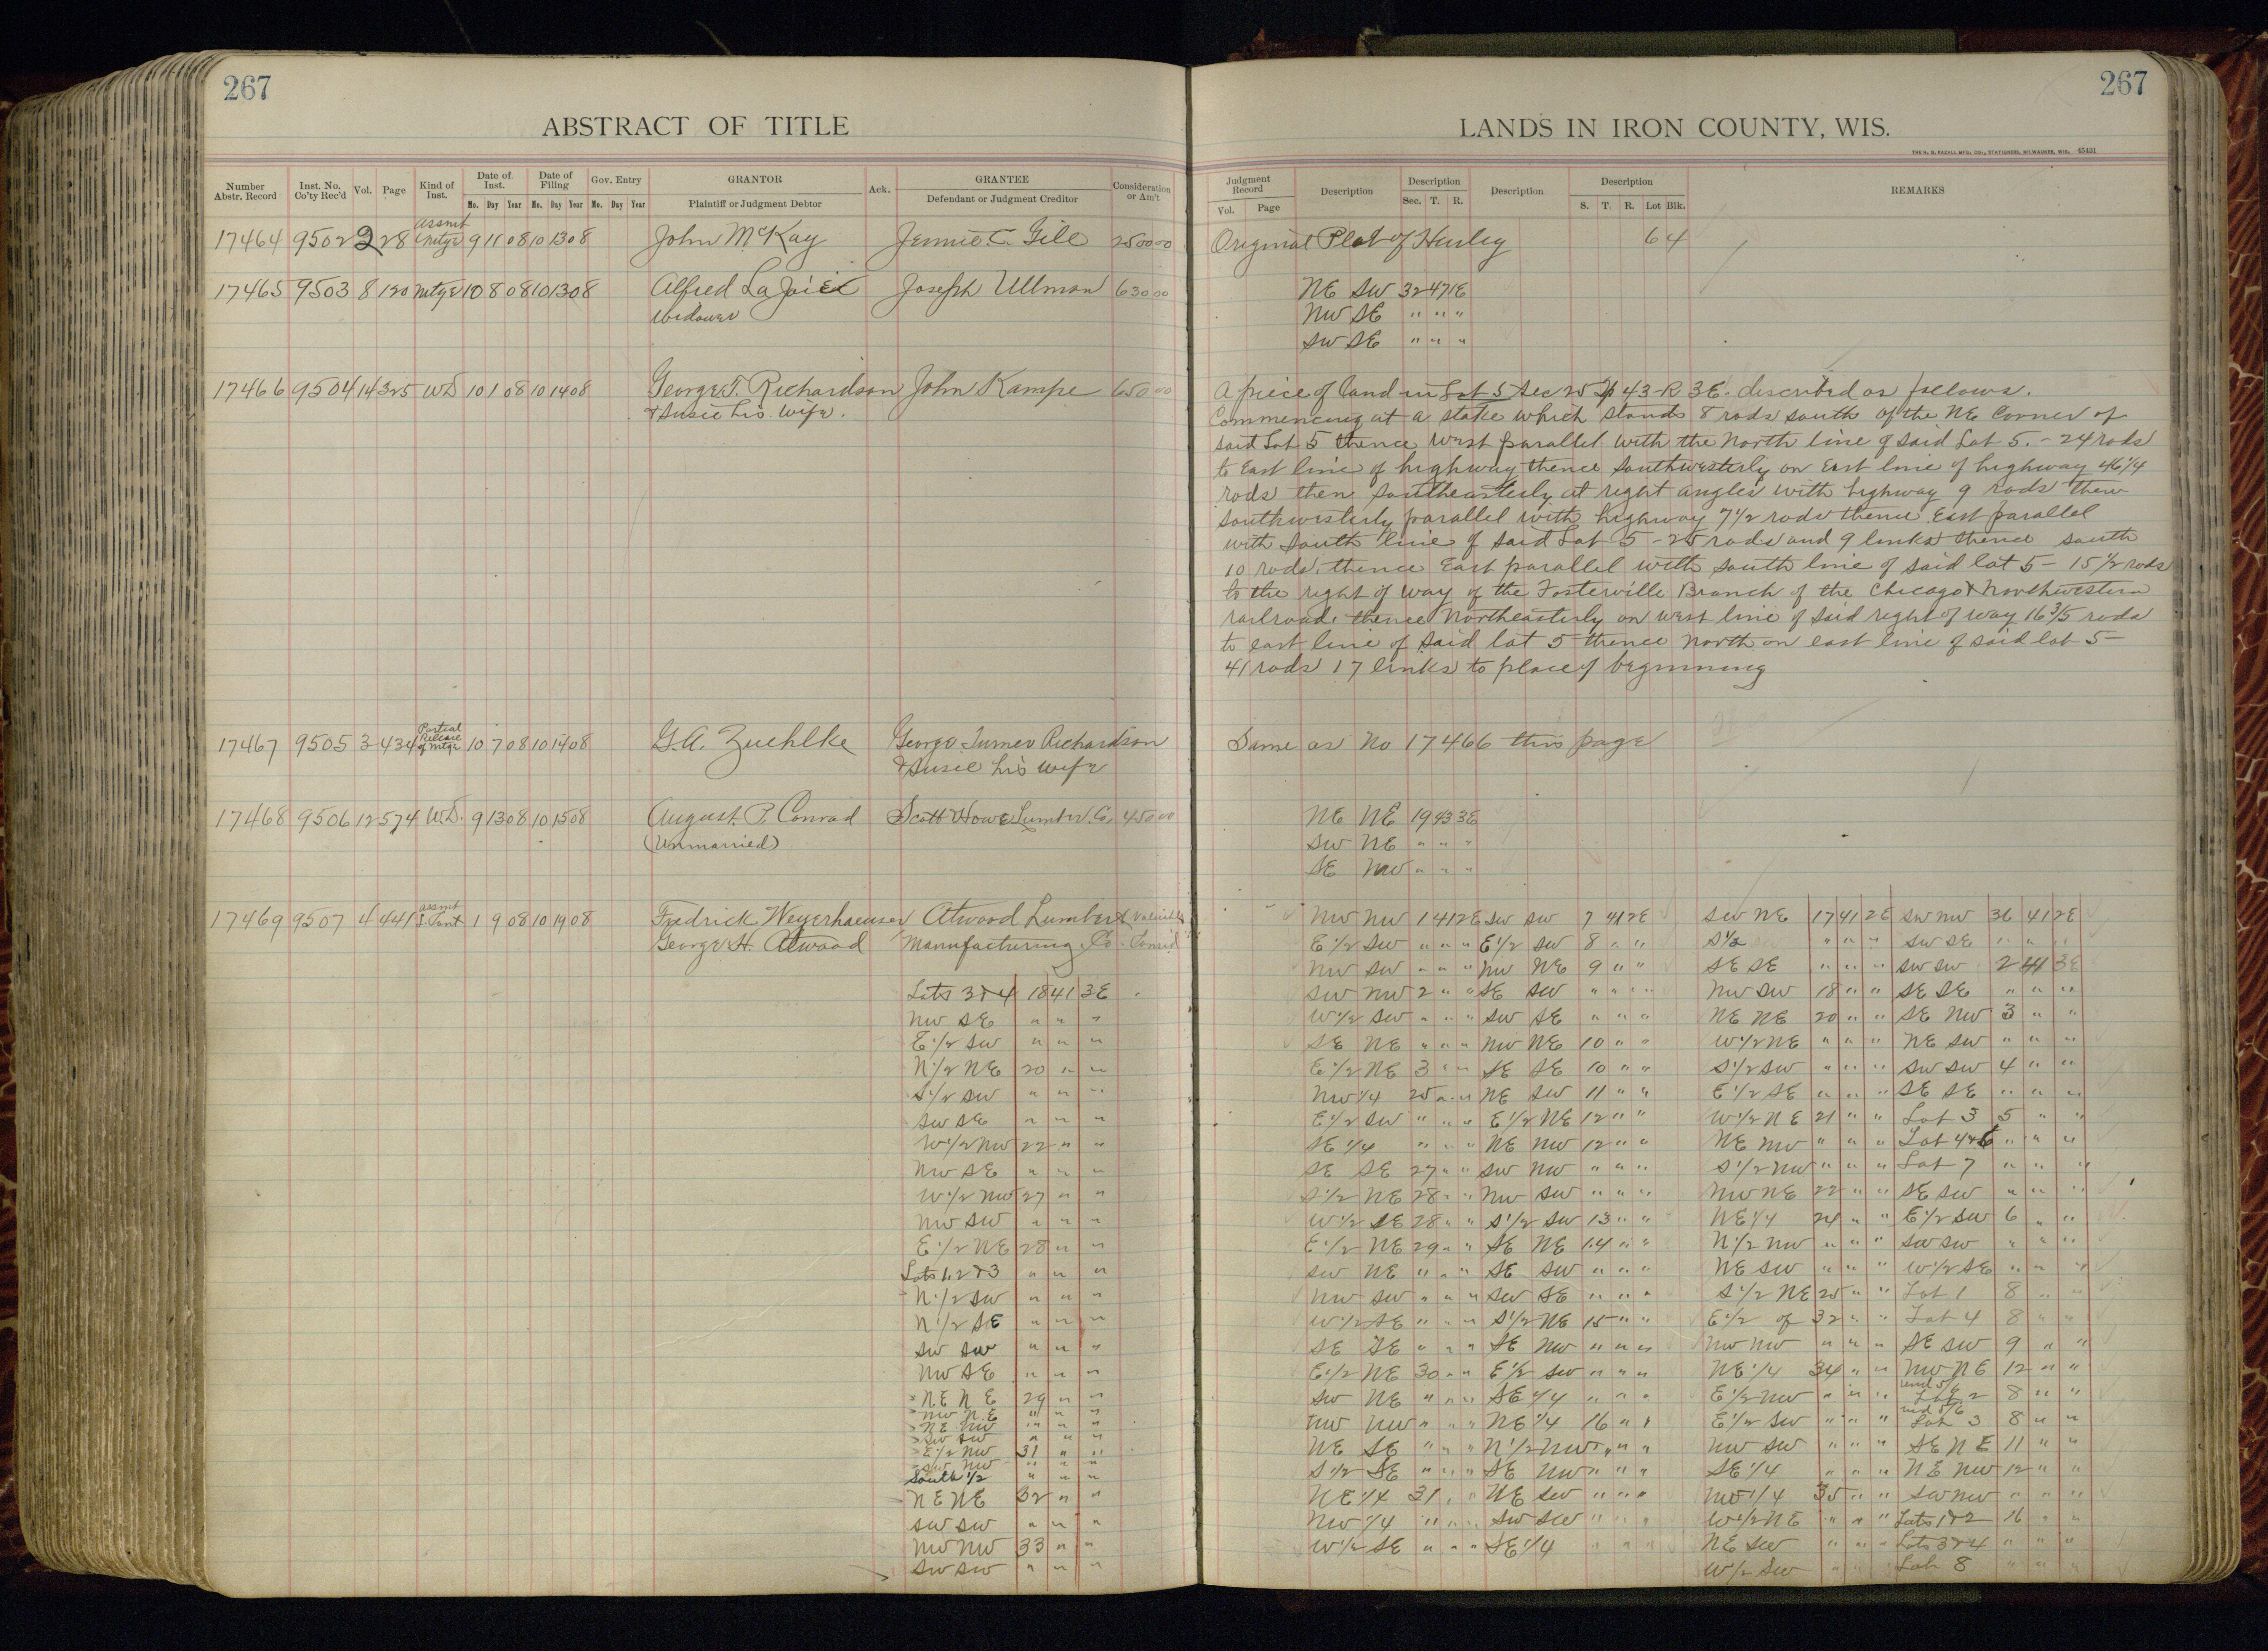 267
ABSTRACT OF TITLE
Number Abstr. Record Inst. No. Co'ty Rec'd Vol. Page Kind of Inst. Date of Inst. Date of Filing Gov. Entry GRANTOR Ack. GRANTEE Consideration or Am't
Mo. Day Year Mo. Day Year Mo. Day Year Plaintiff or Judgment Debtor Defendant or Judgment Creditor
assmt
17464 9502 3 28 mtge 9 11 08 10 13 08 John McKay Jennie C. Gill 2500 00
17465 9503 8 120 mtge 10 8 08 10 13 08 Alfred LaJoie Joseph Ullman 630 00
Widower
17466 9504 14 325 WD 10 1 08 10 14 08 George T. Richardson John Kampe 650 00
& Susie his wife.
Partial Release of mtge
17467 9505 3 434 10 7 08 10 14 08 G.A. Zuehlke George Turner Richardson
& Susie his wife
17468 9506 12 574 W.D. 9 13 08 10 15 08 August. P. Conrad Scott & Howe Lumber. Co, 450 00
(Unmarried)
assmt
17469 9507 4 441 1 9 08 10 19 08 Fredrick Weyerhaeuser Atwood Lumber & Valuable
George H. Atwood Manufacturing Co. Consid
Lots 3 & 4 18 41 3E
NW SE " " "
E 1/2 SW " " "
N 1/2 NE 20 " "
S 1/2 SW " " "
SW SE " " "
W 1/2 NW 22 " "
NW SE " " "
W 1/2 NW 27 " "
NW SW " " "
E 1/2 NE 28 " "
Lots 1, 2 & 3 " " "
N 1/2 SW " " "
N 1/2 SE " " "
SW SW " " "
NW SE " " "
NE NE 29 " "
NW NE " " "
NE NW " " "
SW SW " " "
E 1/2 NW 31 " "
SW NW " " "
South 1/2 " " "
NE NE 32 " "
SW SW " " "
NW NW 33 " "
SW SW " " "
267
LANDS IN IRON COUNTY, WIS.
THE H. G. RAZALL MFG. CO., STATIONERS, MILWAUKEE, WIS. 45431
Judgment Record Description Description Description Description REMARKS
Vol. Page Sec. T. R. S. T. R. Lot Blk.
Original Plat of Hurley 6 4
NE SW 32 47 1E
NW SE " " "
SW SE " " "
A piece of land in Lot 5 Sec 25 Tp 43 - R 3E. described as follows.
Commencing at a stake which stands 8 rods south of the NE Corner of
said Lot 5 thence west parallel with the North line of said Lot 5. - 24 rods
to East line of highway thence southwesterly on East line of highway 46 1/4
rods then southeasterly at right angles with highway 9 rods then
southwesterly parallel with highway 7 1/2 rods thence East parallel
with south line of said Lot 5 - 25 rods and 9 links thence south
10 rods. thence East parallel with south line of said lot 5 - 15 1/2 rods
to the right of way of the Fosterville Branch of the Chicago & Northwestern
railroad, thence Northeasterly on west line of said right of way 16 3/5 rods
to east line of said lot 5 thence North on east line of said lot 5 -
41 rods 17 links to place of beginning
Same as No 17466 this page
NE NE 19 43 3E
SW NE " " "
SE NW " " "
NW NW 1 41 2E SW SW 7 41 2E SW NE 17 41 2E SW NW 36 41 2E
E 1/2 SW " " " E 1/2 SW 8 " " S 1/2 " " " SW SE " " "
NW SW " " " NW NE 9 " " SE SE " " " SW SW 2 41 3E
SW NW 2 " " SE SW " " " NW SW 18 " " SE SE " " "
W 1/2 SW " " " SW SE " " " NE NE 20 " " SE NW 3 " "
SE NE " " " NW NE 10 " " W 1/2 NE " " " NE SW " " "
E 1/2 NE 3 " " SE SE 10 " " S 1/2 SW " " " SW SW 4 " "
NW 1/4 25 " " NE SW 11 " " E 1/2 SE " " " SE SE " " "
E 1/2 SW " " " E 1/2 NE 12 " " W 1/2 NE 21 " " Lot 3 5 " "
SE 1/4 " " " NE NW 12 " " NE NW " " " Lot 4 & 6 " " "
SE SE 27 " " SW NW " " " S 1/2 NW " " " Lot 7 " " "
S 1/2 NE 28 " " NW SW " " " NW NE 22 " " SE SW " " "
W 1/2 SE 28 " " S 1/2 SW 13 " " NE 1/4 24 " " E 1/2 SW 6 " "
E 1/2 NE 29 " " SE NE 14 " " N 1/2 NW " " " SW SW " " "
SW NE " " " SE SW " " " NE SW " " " W 1/2 SE " " "
NW SW " " " SW SE " " " S 1/2 NE 25 " " Lot 1 8 " "
W 1/2 SE " " " S 1/2 NE 15 " " E 1/2 of 32 " " Lot 4 8 " "
SE SE " " " SE NW " " " NW NW " " " SE SW 9 " "
E 1/2 NE 30 " " E 1/2 SW " " " NE 1/4 34 " " NW NE 12 " "
SW NE " " " SE 1/4 " " " E 1/2 NW " " " und 5/6 Lot 2 8 " "
NW NW " " " NE 1/4 16 " " E 1/2 SW " " " und 5/6 Lot 3 8 " "
NE SE " " " N 1/2 NW " " " NW SW " " " SE NE 11 " "
S 1/2 SE " " " SE NW " " " SE 1/4 " " " NE NW 12 " "
NE 1/4 31 " " NE SW " " " NW 1/4 35 " " SW NW " " "
NW 1/4 " " " SW SW " " " W 1/2 NE " " " Lots 1 & 2 16 " "
W 1/2 SE " " " SE 1/4 " " " NE SW " " " Lots 3 & 4 " " "
W 1/2 SW " " " Lot 8 " " "